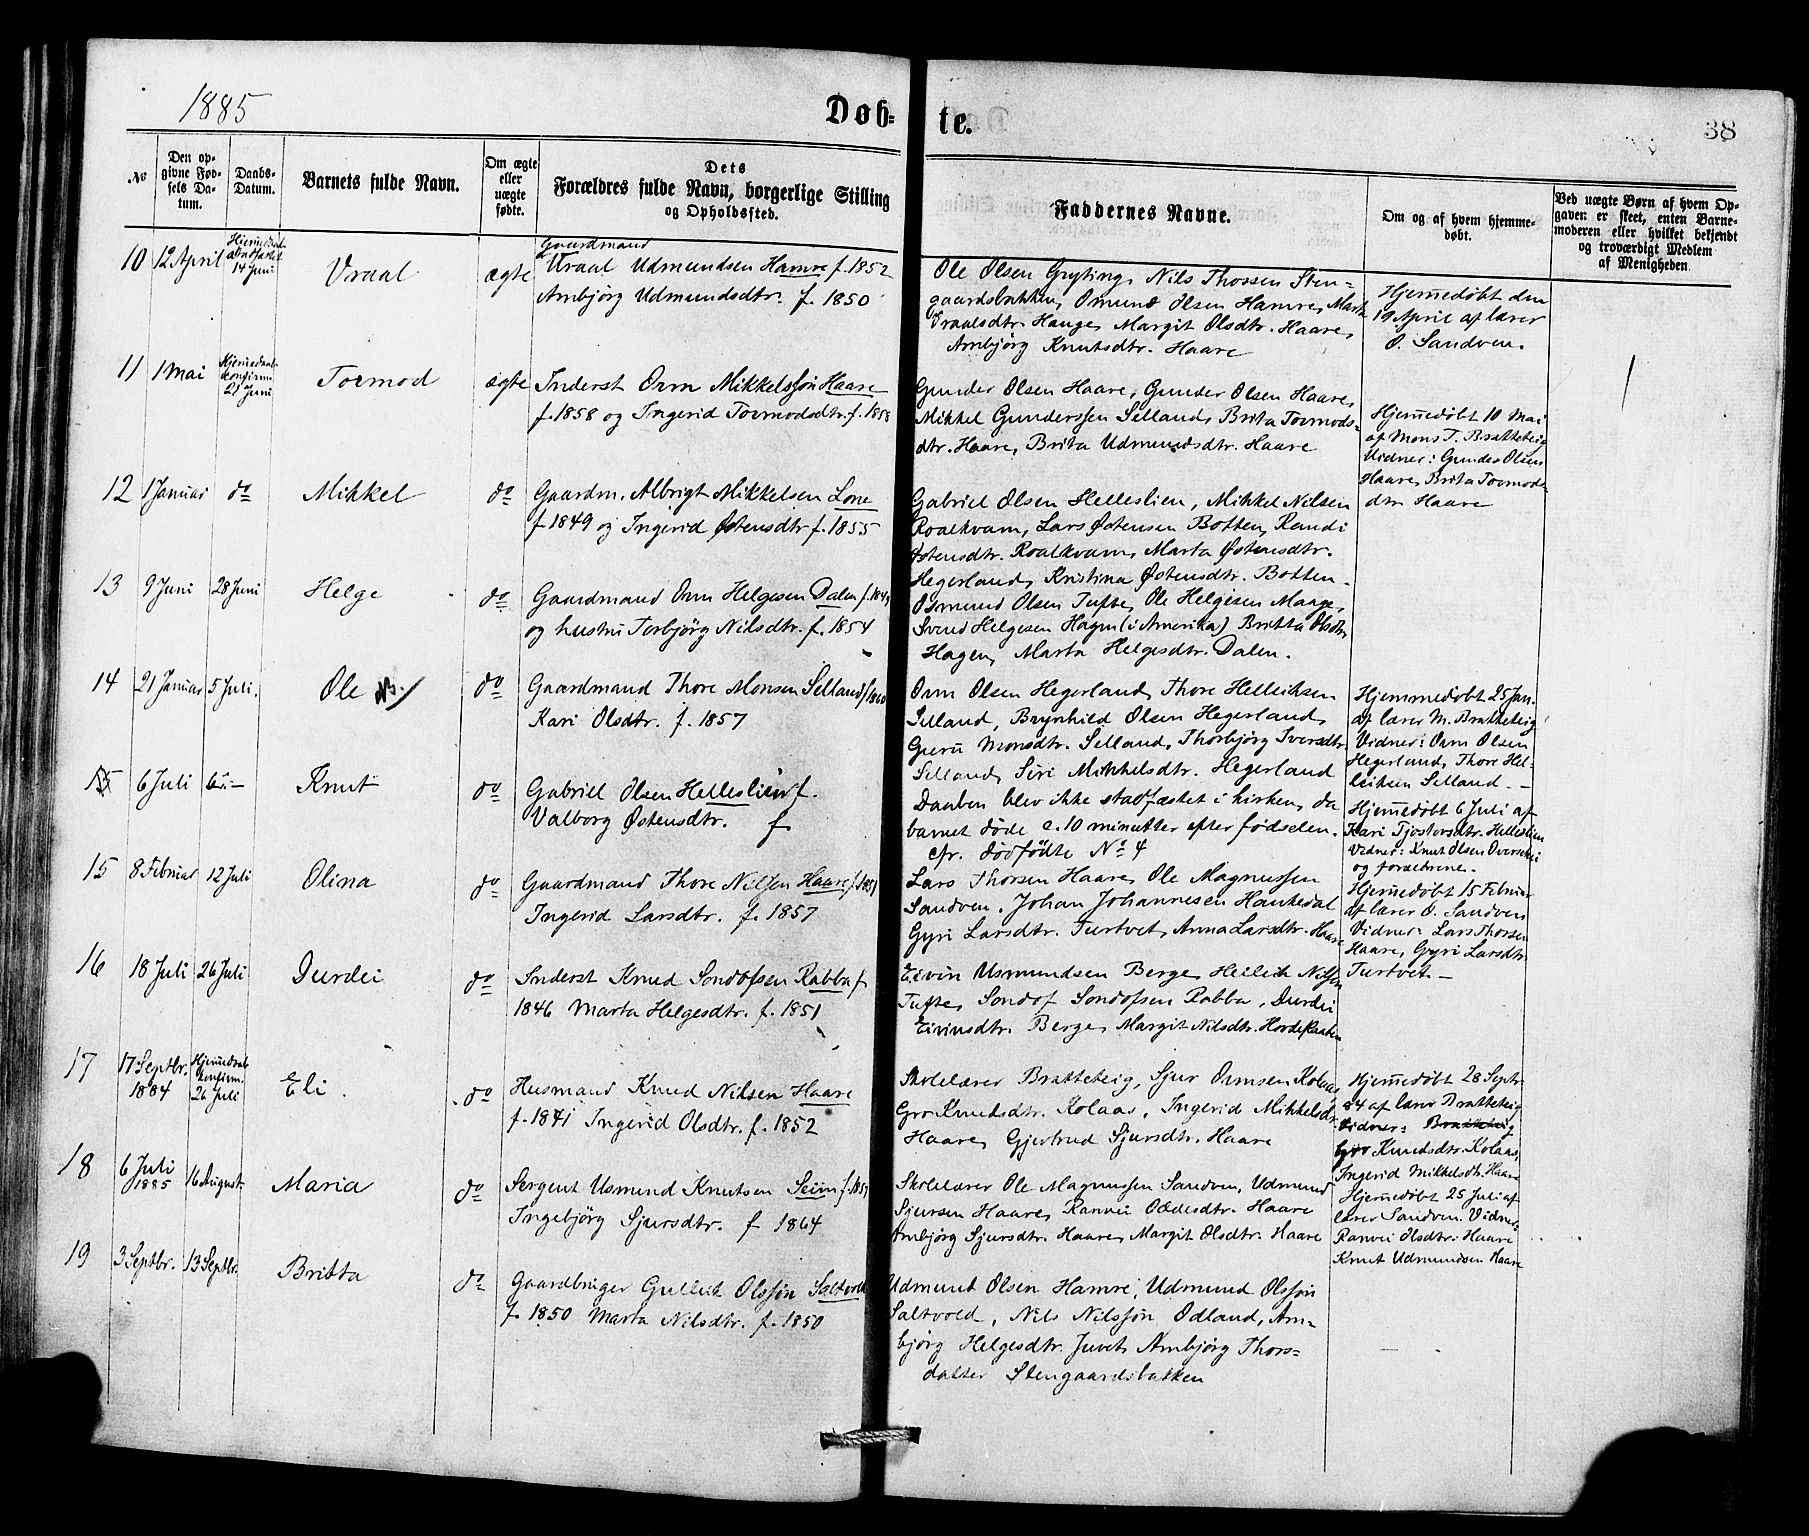 1885
Døb-
te.
38
No
Den op-
givne Fød-
sels Da-
tum.
Daabs-
Datum.
Barnets fulde Navn.
Om ægte
eller
uægte
fødte.
Dets
Forældres fulde Navn, borgerlige Stilling
og Opholdssted.
Faddernes Navne.
Om og af hvem hjemme-
døbt.
Ved uægte Børn af hvem Op-
gaven er skeet, enten Barne-
moderen eller hvilket bekjendt
og troværdigt Medlem
af Menigheden.
10 12 April
14 Juni
Vraal
ægte
Gaardmand
Vraal Udmundsen Hamre f. 1852
Ambjørg Udmundsdtr. f. 1850
Ole Olsen Gryting, Nils Thorsen Sten-
gaardsbakken, Omund Olsen Hamre, Marta
Vraalsdtr. Hauge, Margit Olsdtr. Haare,
Ambjørg Knutsdtr. Haare
Hjemmedøbt den
19 April af lærer
O. Sandven.
11 1 Mai
Hjemmedaab
konfirm.
21 Juni
Tormod
ægte
Inderst Orm Mikkelsøn Haare
f. 1858 og Ingerid Tormodsdtr. f. 1858
Gunder Olsen Haare, Gunder Olsen Haare,
Mikkel Gundersen Selland, Brita Tormods-
dtr. Haare, Brita Udmundsdtr. Haare
Hjemmedøbt 10 Mai
af Mons T. Bratteteig
Vidner: Gunder Olsen
Haare, Brita Tormods-
dtr. Haare
12 1 Januar do
Mikkel
do
Gaardm. Albrigt Mikkelsen Lone
f. 1849 og Ingerid Østensdtr. f. 1855
Gabriel Olsen Helleslien, Mikkel Nilsen
Roalkvam, Lars Østensen Botten, Randi
Østensdtr. Roalkvam, Marta Østensdtr.
Hegerland, Kristina Østensdtr. Botten.
13 9 Juni 28 Juni
Helge
do
Gaardmand Orm Helgesen Dalen f. 1849
og hustru Torbjörg Nilsdtr. f. 1854
Osmund Olsen Tufte, Ole Helgesen Maage,
Svend Helgesen Hagen (i Amerika) Britta Olsdtr.
Hagen, Marta Helgesdtr. Dalen.
14 21 Januar 5 Juli.
Ole
do
Gaardmand Thore Monsen Selland f. 1860
Kari Olsdtr. f. 1857
Orm Olsen Hegerland, Thore Helleiksen
Selland, Brynhild Olsen Hegerland,
Guru Monsdtr. Selland, Thorbjørg Iversdtr.
Selland, Siri Mikkelsdtr. Hegerland
Hjemmedøbt 25 Jan.
af lærer M. Bratteteig
Vidner: Orm Olsen
Hegerland, Thore Hel-
leiksen Selland. —
15 6 Juli
Knut
do
Gabriel Olsen Helleslien f.
Valborg Østensdtr. f.
Daaben blev ikke stadfæstet i kirken, da
barnet døde c. 10 minutter efter fødselen.
cfr. dödfödte No 4
Hjemmedøbt 6 Juli af
Kari Tjostovsdtr. Helleslien
Vidner: Knut Olsen
og forældrene.
15 8 Februar 12 Juli
Olina
do
Gaardmand Thore Nilssen Haare f. 1851
Ingerid Larsdtr. f. 1857
Lars Thorsen Haare, Ole Magnussen
Sandven, Johan Johannesen Haukedal
Gyri Larsdtr. Turtvet, Anna Larsdtr. Haare
Hjemmedøbt 15 Februar
af lærer O. Sandven
Vidner: Lars Thorsen
Haare, Gyri Larsdtr.
Turtvet. —
16 18 Juli 26 Juli
Durdei
do
Inderst Knud Sondofsen Rabba f.
1846 Marta Helgesdtr. f. 1851
Eivin Usmundsen Berge, Helleik Nilssen
Tufte, Sondof Sondofsen Rabba, Durdei
Eivinsdtr. Berge, Margit Nilsdtr.
17 17 Septbr.
1884
Hjemmedaab
konfirm.
26 Juli
Eli
do
Husmand Knud Nilsen Haare
f. 1841 Ingerid Olsdtr. f. 1852
Skolelærer Bratteteig, Sjur Ormsen Kolaas,
Gro Knudsdtr. Kolaas, Ingerid Mikkelsdtr.
Haare, Gjertrud Sjursdtr. Haare
Hjemmedøbt 28 Septr.
84 af lærer Bratteteig
Vidner: Bratteteig
Gro Knudsdtr. Kolaas,
Ingerid Mikkelsdtr. Haare
18 6 Juli
1885
16 August.
Maria
do
Sergent Usmund Knutsen Seim f. 1859
Ingebjörg Sjursdtr. f 1864
Skolelærer Ole Magnussen Sandven, Udmund
Sjursen Haare, Ranvei Oddesdtr. Haare
Ambjörg Sjursdtr. Haare, Margit Olsdtr. Haare
Hjemmedøbt 25 Juli af
lærer Sandven. Vidner:
Ranvei Olsdtr. Haare
Knut Udmundsen Haare
19 3 Septbr. 13 Septbr.
Britta
do
Gaardbruger Gulleik Olssøn Saltvold
f. 1850 Marta Nilsdtr. f. 1850
Udmund Olsen Hamre, Udmund Olssøn
Saltvold, Nils Nilssøn Odland, Am-
bjørg Helgesdtr. Juvet, Ambjörg Thors-
datter Stengaardsbakken